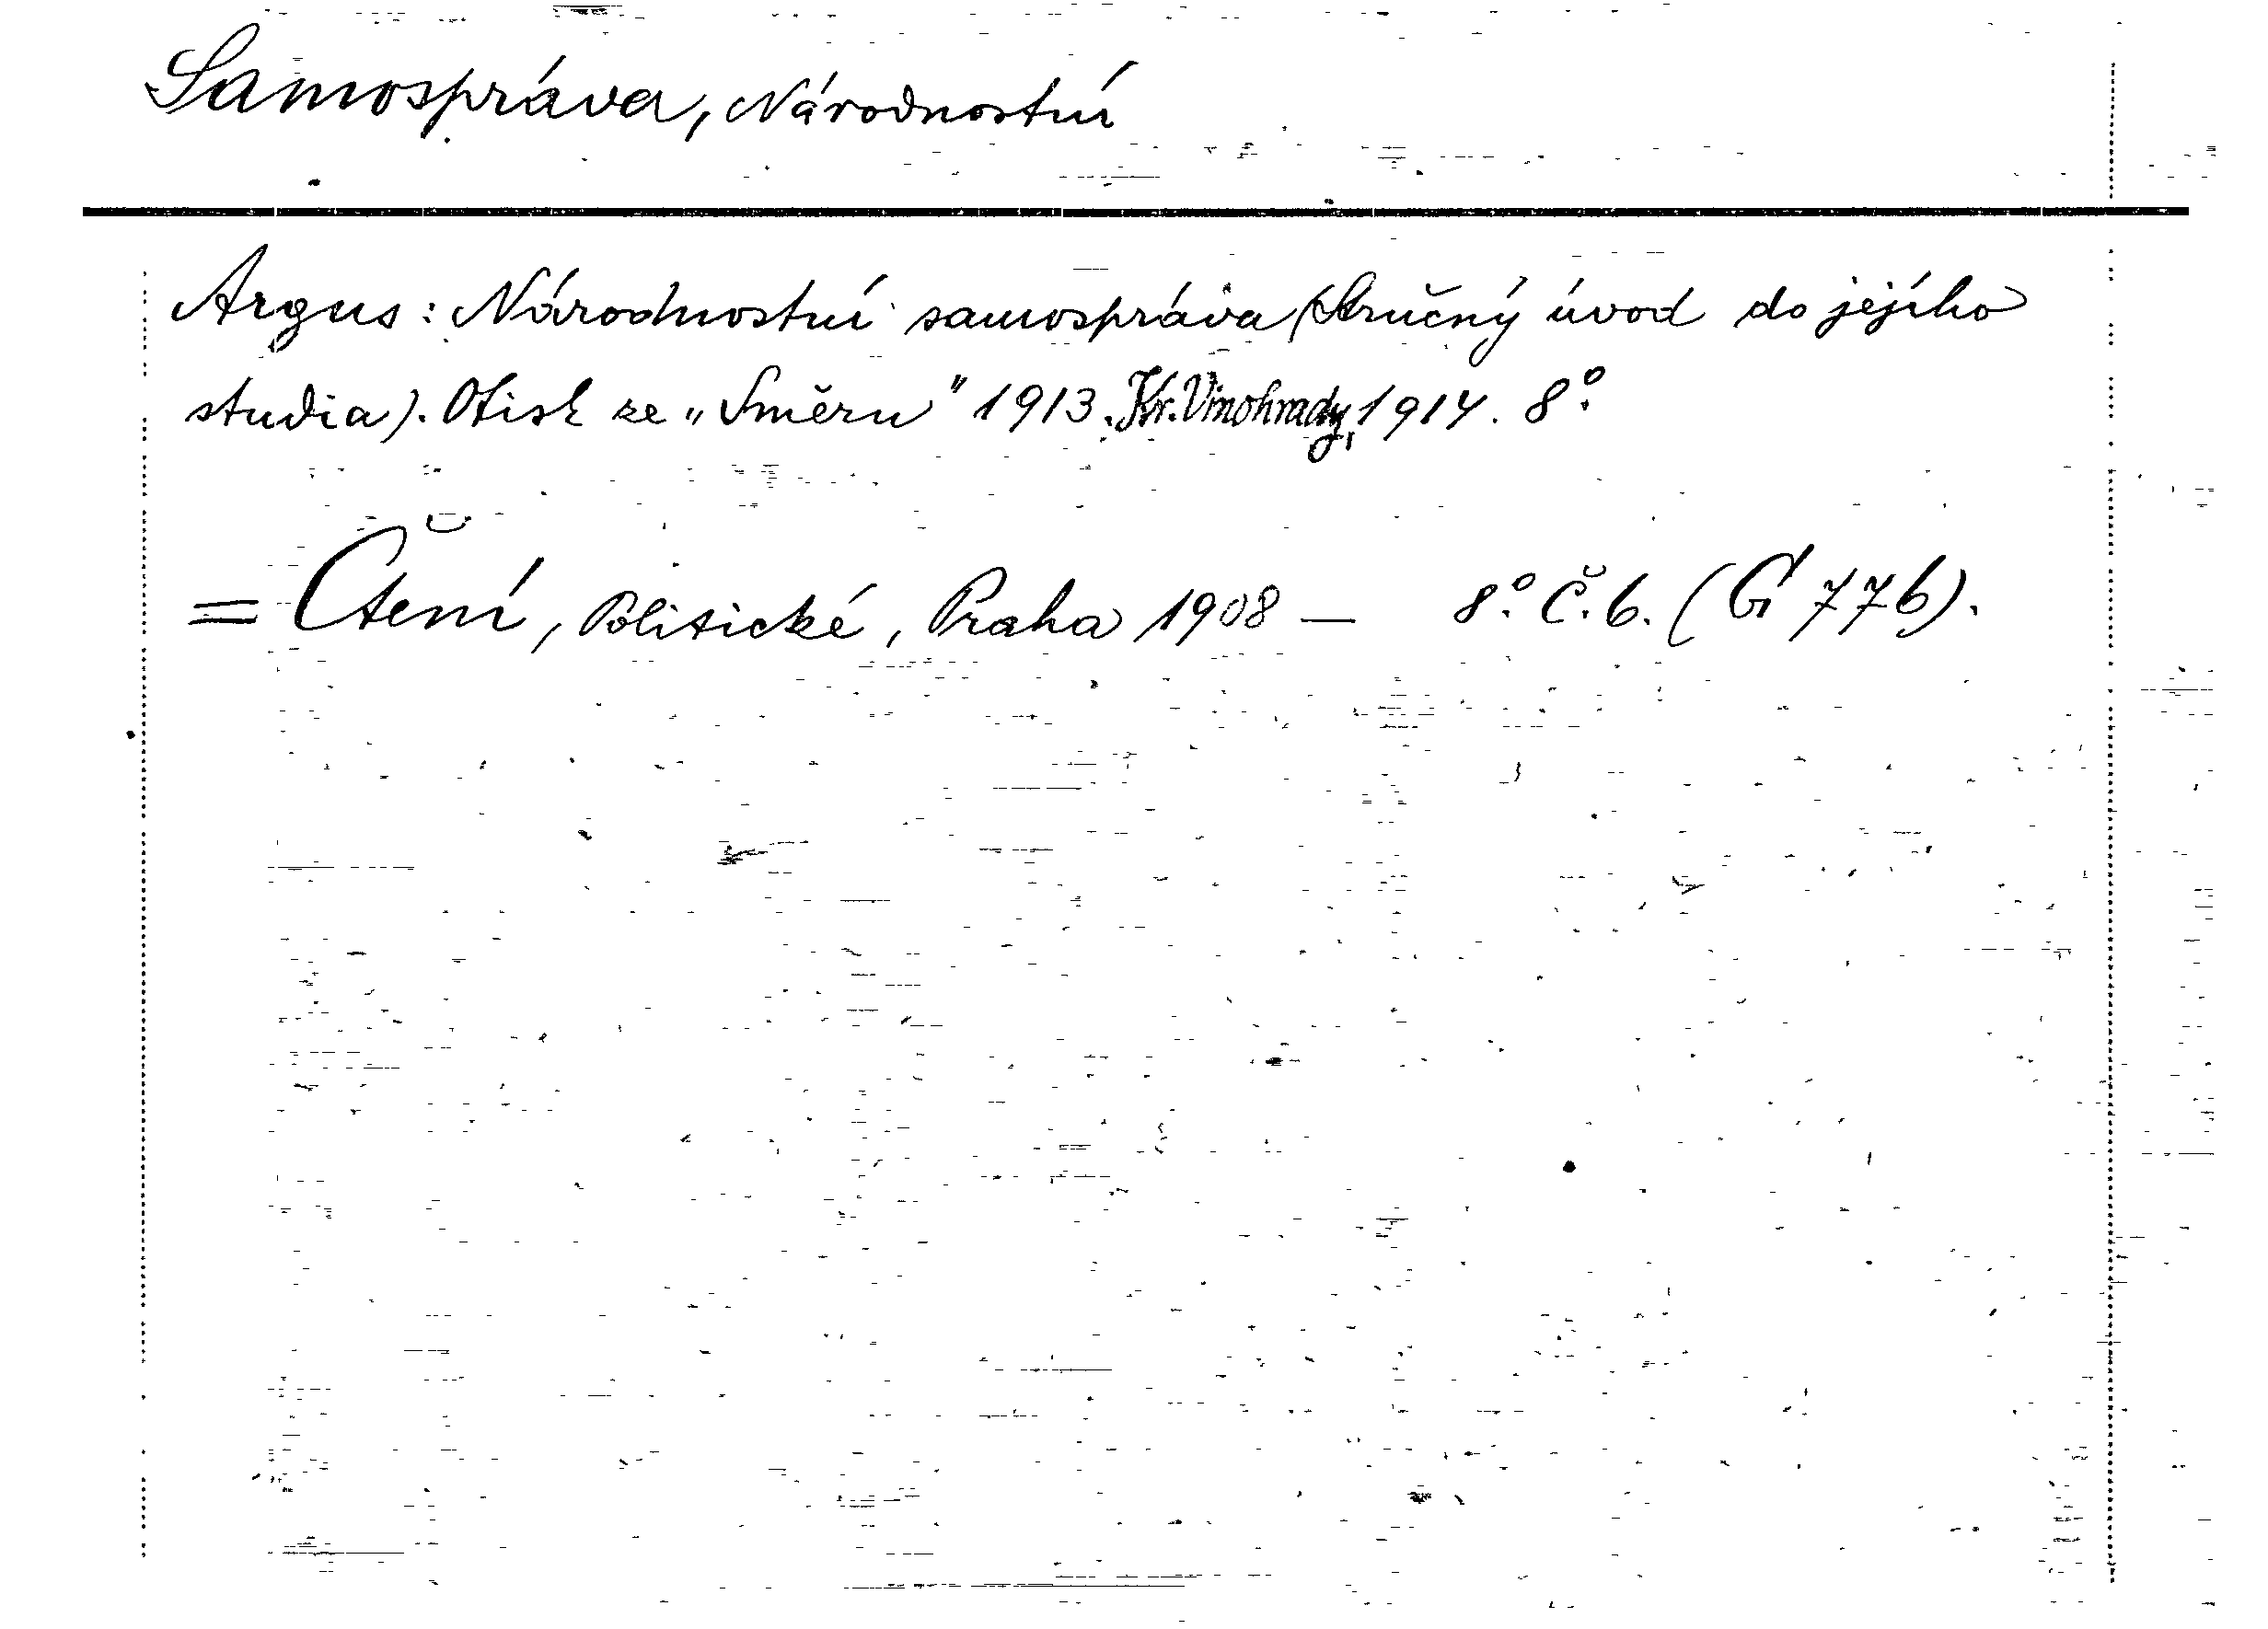 Samospráva, Národnostní
Argus: Národnostní samospráva (Stručný úvod do jejího
studia). Otisk ze „Směru" 1913. Kr. Vinohrady, 1914. 8°.
= Čtení, Politické, Praha 1908 — 8°. Č. 6. (G 776).